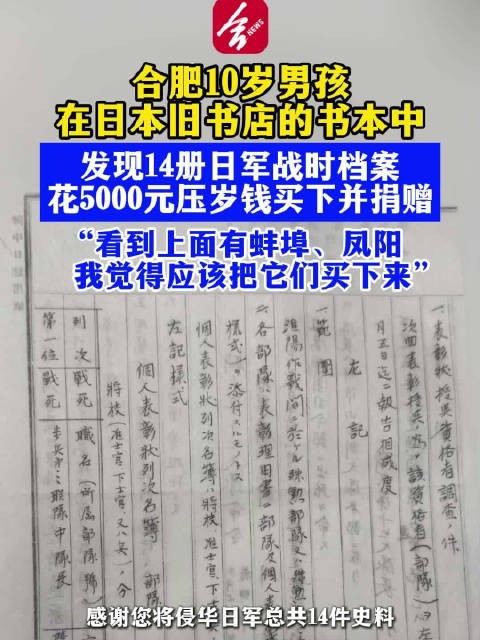 NEWS
合肥10岁男孩
在日本旧书店的书本中
发现14册日军战时档案
花5000元压岁钱买下并捐赠
“看到上面有蚌埠、凤阳
我觉得应该把它们买下来”
一表彰狀授與資格者調查ノ件
次回表彰授與ノ為、該資格者(部隊)
月五日迄ニ報告相成度
左記
一範圍
淮陽作戰間ニ於ケル殊勲部隊又ハ
二各部隊ハ表彰理由書(部隊及個人表
樣式)ヲ添付スルモノトス
個人表彰狀列次名簿(將校、准士官、下士
左記樣式
個人表彰狀列次名簿 部隊
將校(准士官、下士官又ハ兵)ノ分
列次 戰死 職名(所屬部隊號)
第一位 戰死 聯隊中隊長
感谢您将侵华日军总共14件史料